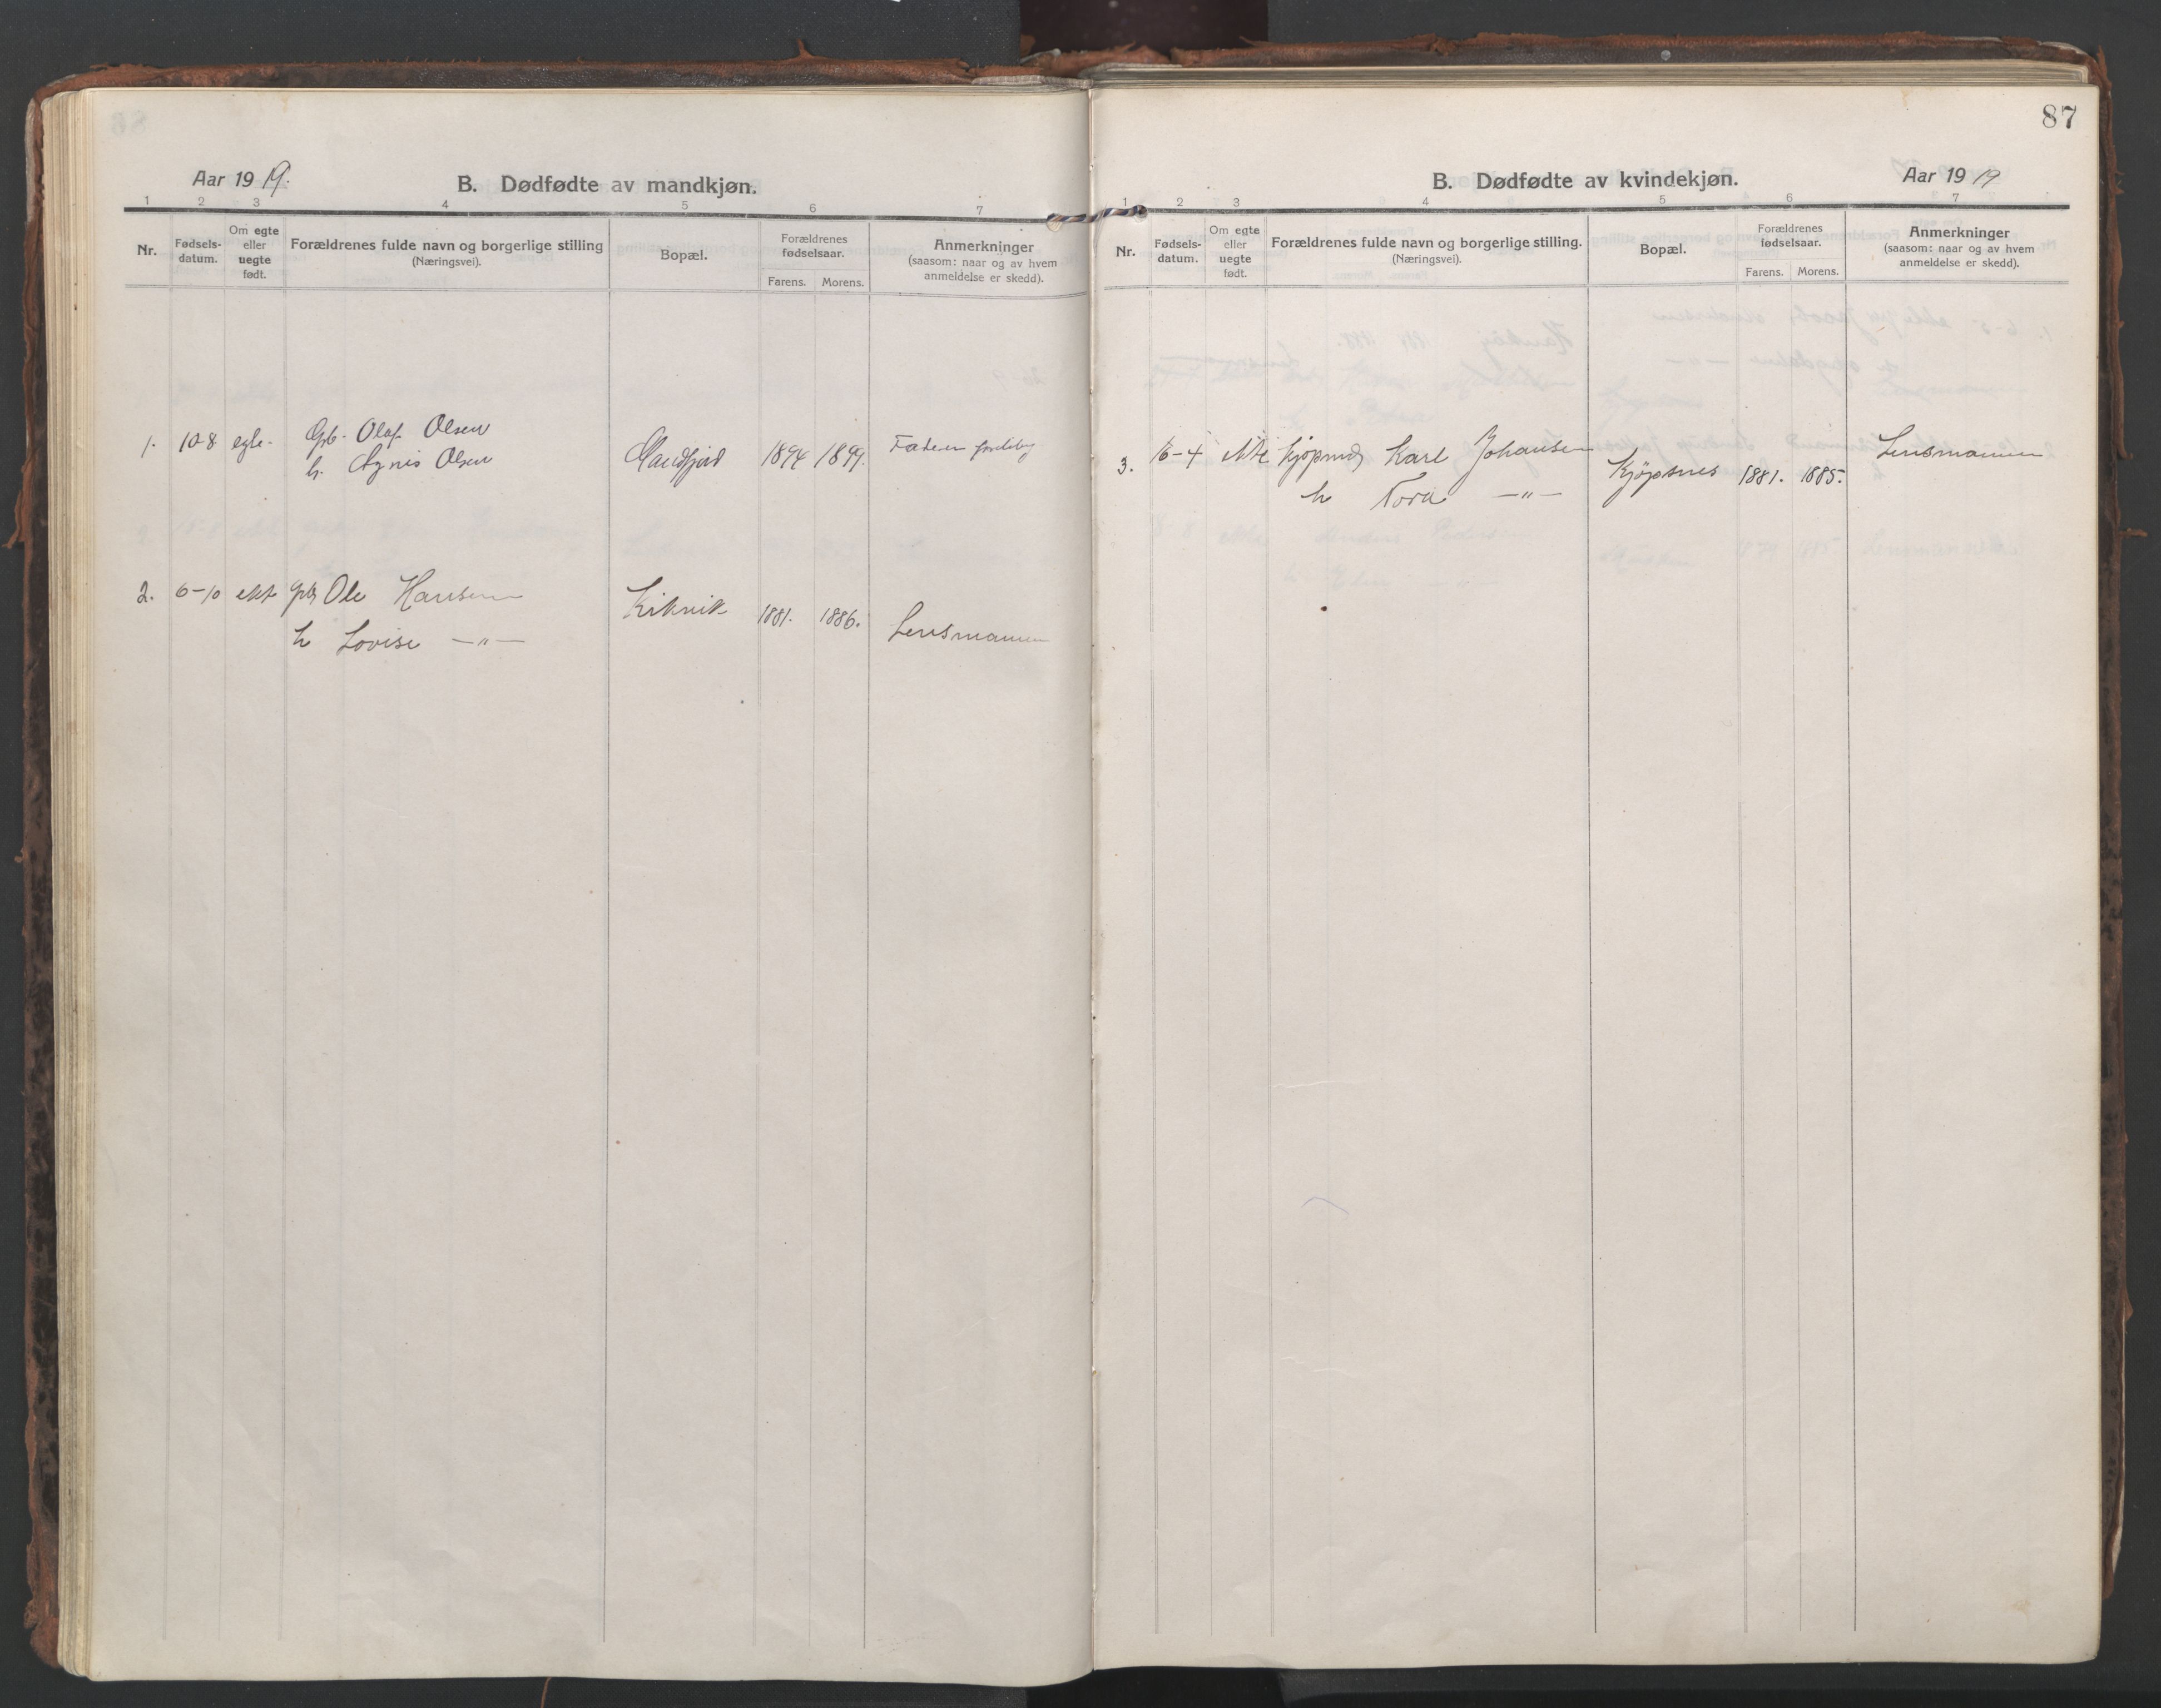 Aar 1919.
B. Dødfødte av mandkjøn.
1 2 3 4 5 6 7
Nr.
Fødsels-
datum.
Om egte
eller
uegte
født.
Forældrenes fulde navn og borgerlige stilling
(Næringsvei).
Bopæl.
Forældrenes
fødselsaar.
Farens. Morens.
Anmerkninger
(saasom: naar og av hvem
anmeldelse er skedd).
1. 10-8 egte. Gb. Olaf Olsen
h. Agnes Olsen
1894 1899.
Faderen
2. 6-10 ekt Ole Hansen
h Lovise —"—
Kikvik 1881. 1886.
Lensmannen
87
B. Dødfødte av kvindekjøn.
Aar 1919
1 2 3 4 5 6 7
Nr.
Fødsels-
datum.
Om egte
eller
uegte
født.
Forældrenes fulde navn og borgerlige stilling.
(Næringsvei).
Bopæl.
Forældrenes
fødselsaar.
Farens. Morens.
Anmerkninger
(saasom: naar og av hvem
anmeldelse er skedd).
3. 16-4 ekte Kjøpmd Karl Johansen
h Tora —"—
Kjøpsnes 1881. 1885.
Lensmannen